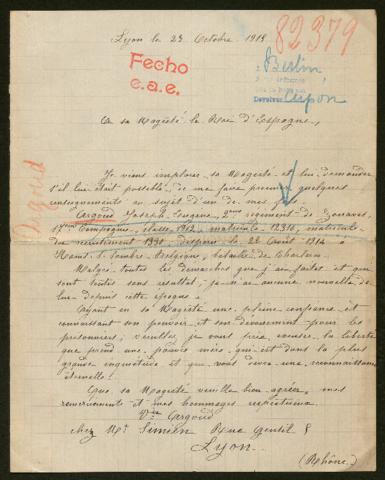 Lyon le 23 Octobre 1915
82379
Fecho
e.a.e.
Berlin
Devolver
A sa Majesté le Roi d'Espagne,
Je viens implorer sa Majesté et lui demander
s'il lui était possible de me faire prendre quelques
renseignements au sujet d'un de mes fils
Argoud
Argoud Joseph Eugène, 2me régiment de Zouaves,
17eme Compagnie, classe 1912, matricule 12316, matricule
du recrutement 1391 disparu le 22 Août 1914 à
Ham s. Sambre Belgique, bataille de Charleroi.
Malgré toutes les démarches que j'ai faites et qui
sont toutes sans résultat, je n'ai aucune nouvelle de
lui depuis cette époque.
Ayant en sa Majesté une pleine confiance et
connaissant son pouvoir et son dévouement pour les
prisonniers, veuillez, je vous prie, excuser la liberté
que prend une pauvre mère qui est dans la plus
grande inquiétude et qui vous devra une reconnaissance
éternelle!
Que sa Majesté veuille bien agréer, mes
remerciements et mes hommages respectueux
Vve Argoud
chez Mr Simien Rue Gentil 8
Lyon.
(Rhône)